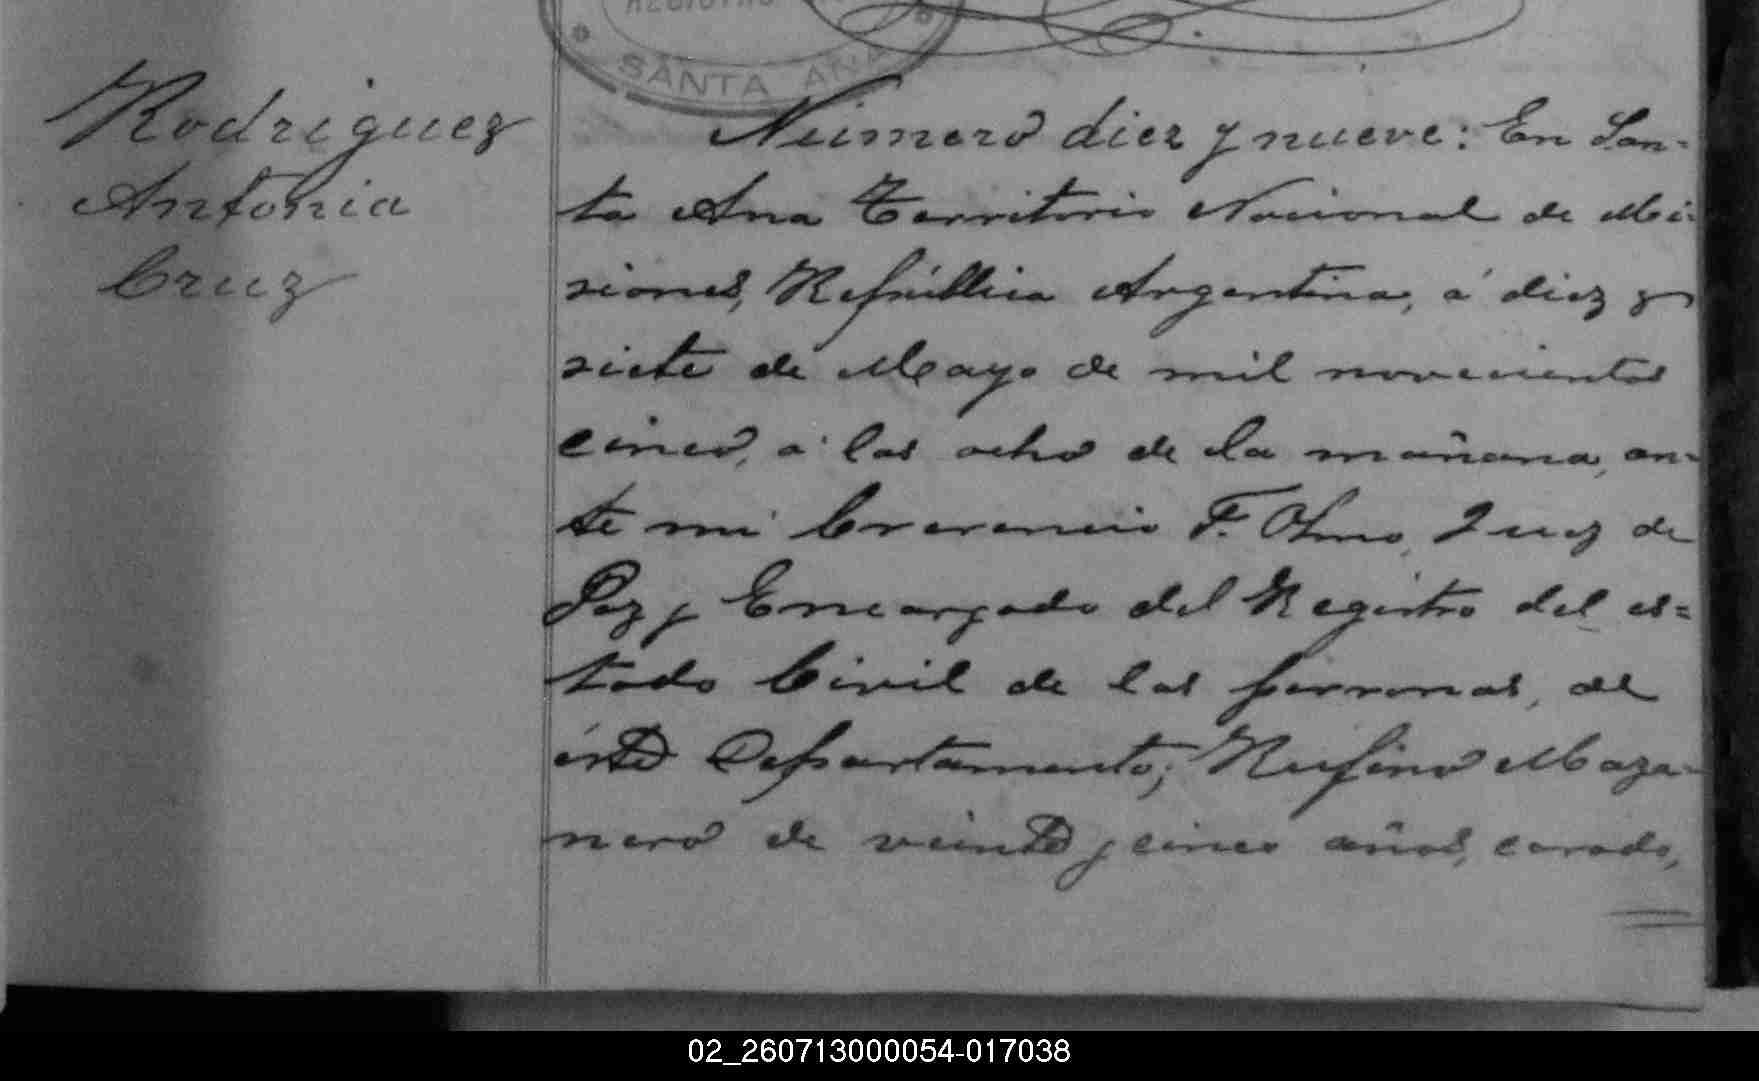 REGISTRO
SANTA ANA
Rodriguez
Antonia
Cruz
Número diez y nueve: En San-
ta Ana Territorio Nacional de Mi-
siones, República Argentina, á diez y
siete de Mayo de mil novecientos
cinco, á las ocho de la mañana, an-
te mi Crecencio F. Olmo, Juez de
Paz y Encargado del Registro del es=
tado Civil de las personas, de
éste Departamento; Rufino Maza-
nero de veinte y cinco años, casado,
02_260713000054-017038